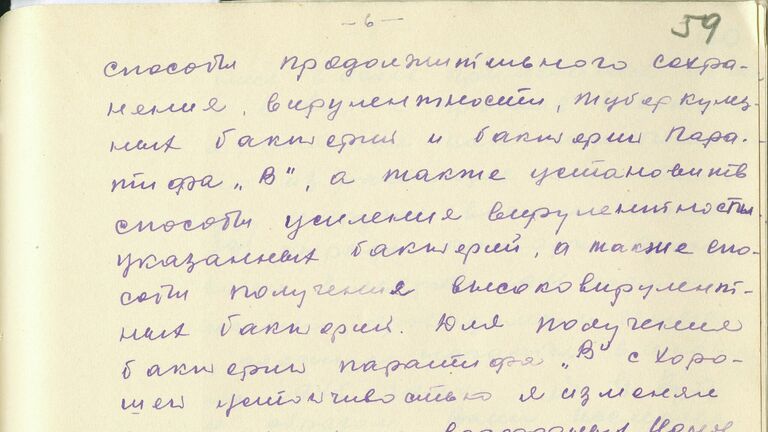 — 6 —
59
способы продолжительного сохра-
нения, вирулентности, туберкулез-
ных бактерий и бактерий Пара-
тифа „В", а также установить
способы усиления вирулентности
указанных бактерий, а также спо-
собы получения высоковирулент-
ных бактерий. Для получения
бактерий паратифа „В" с хоро-
шей устойчивостью я изменял